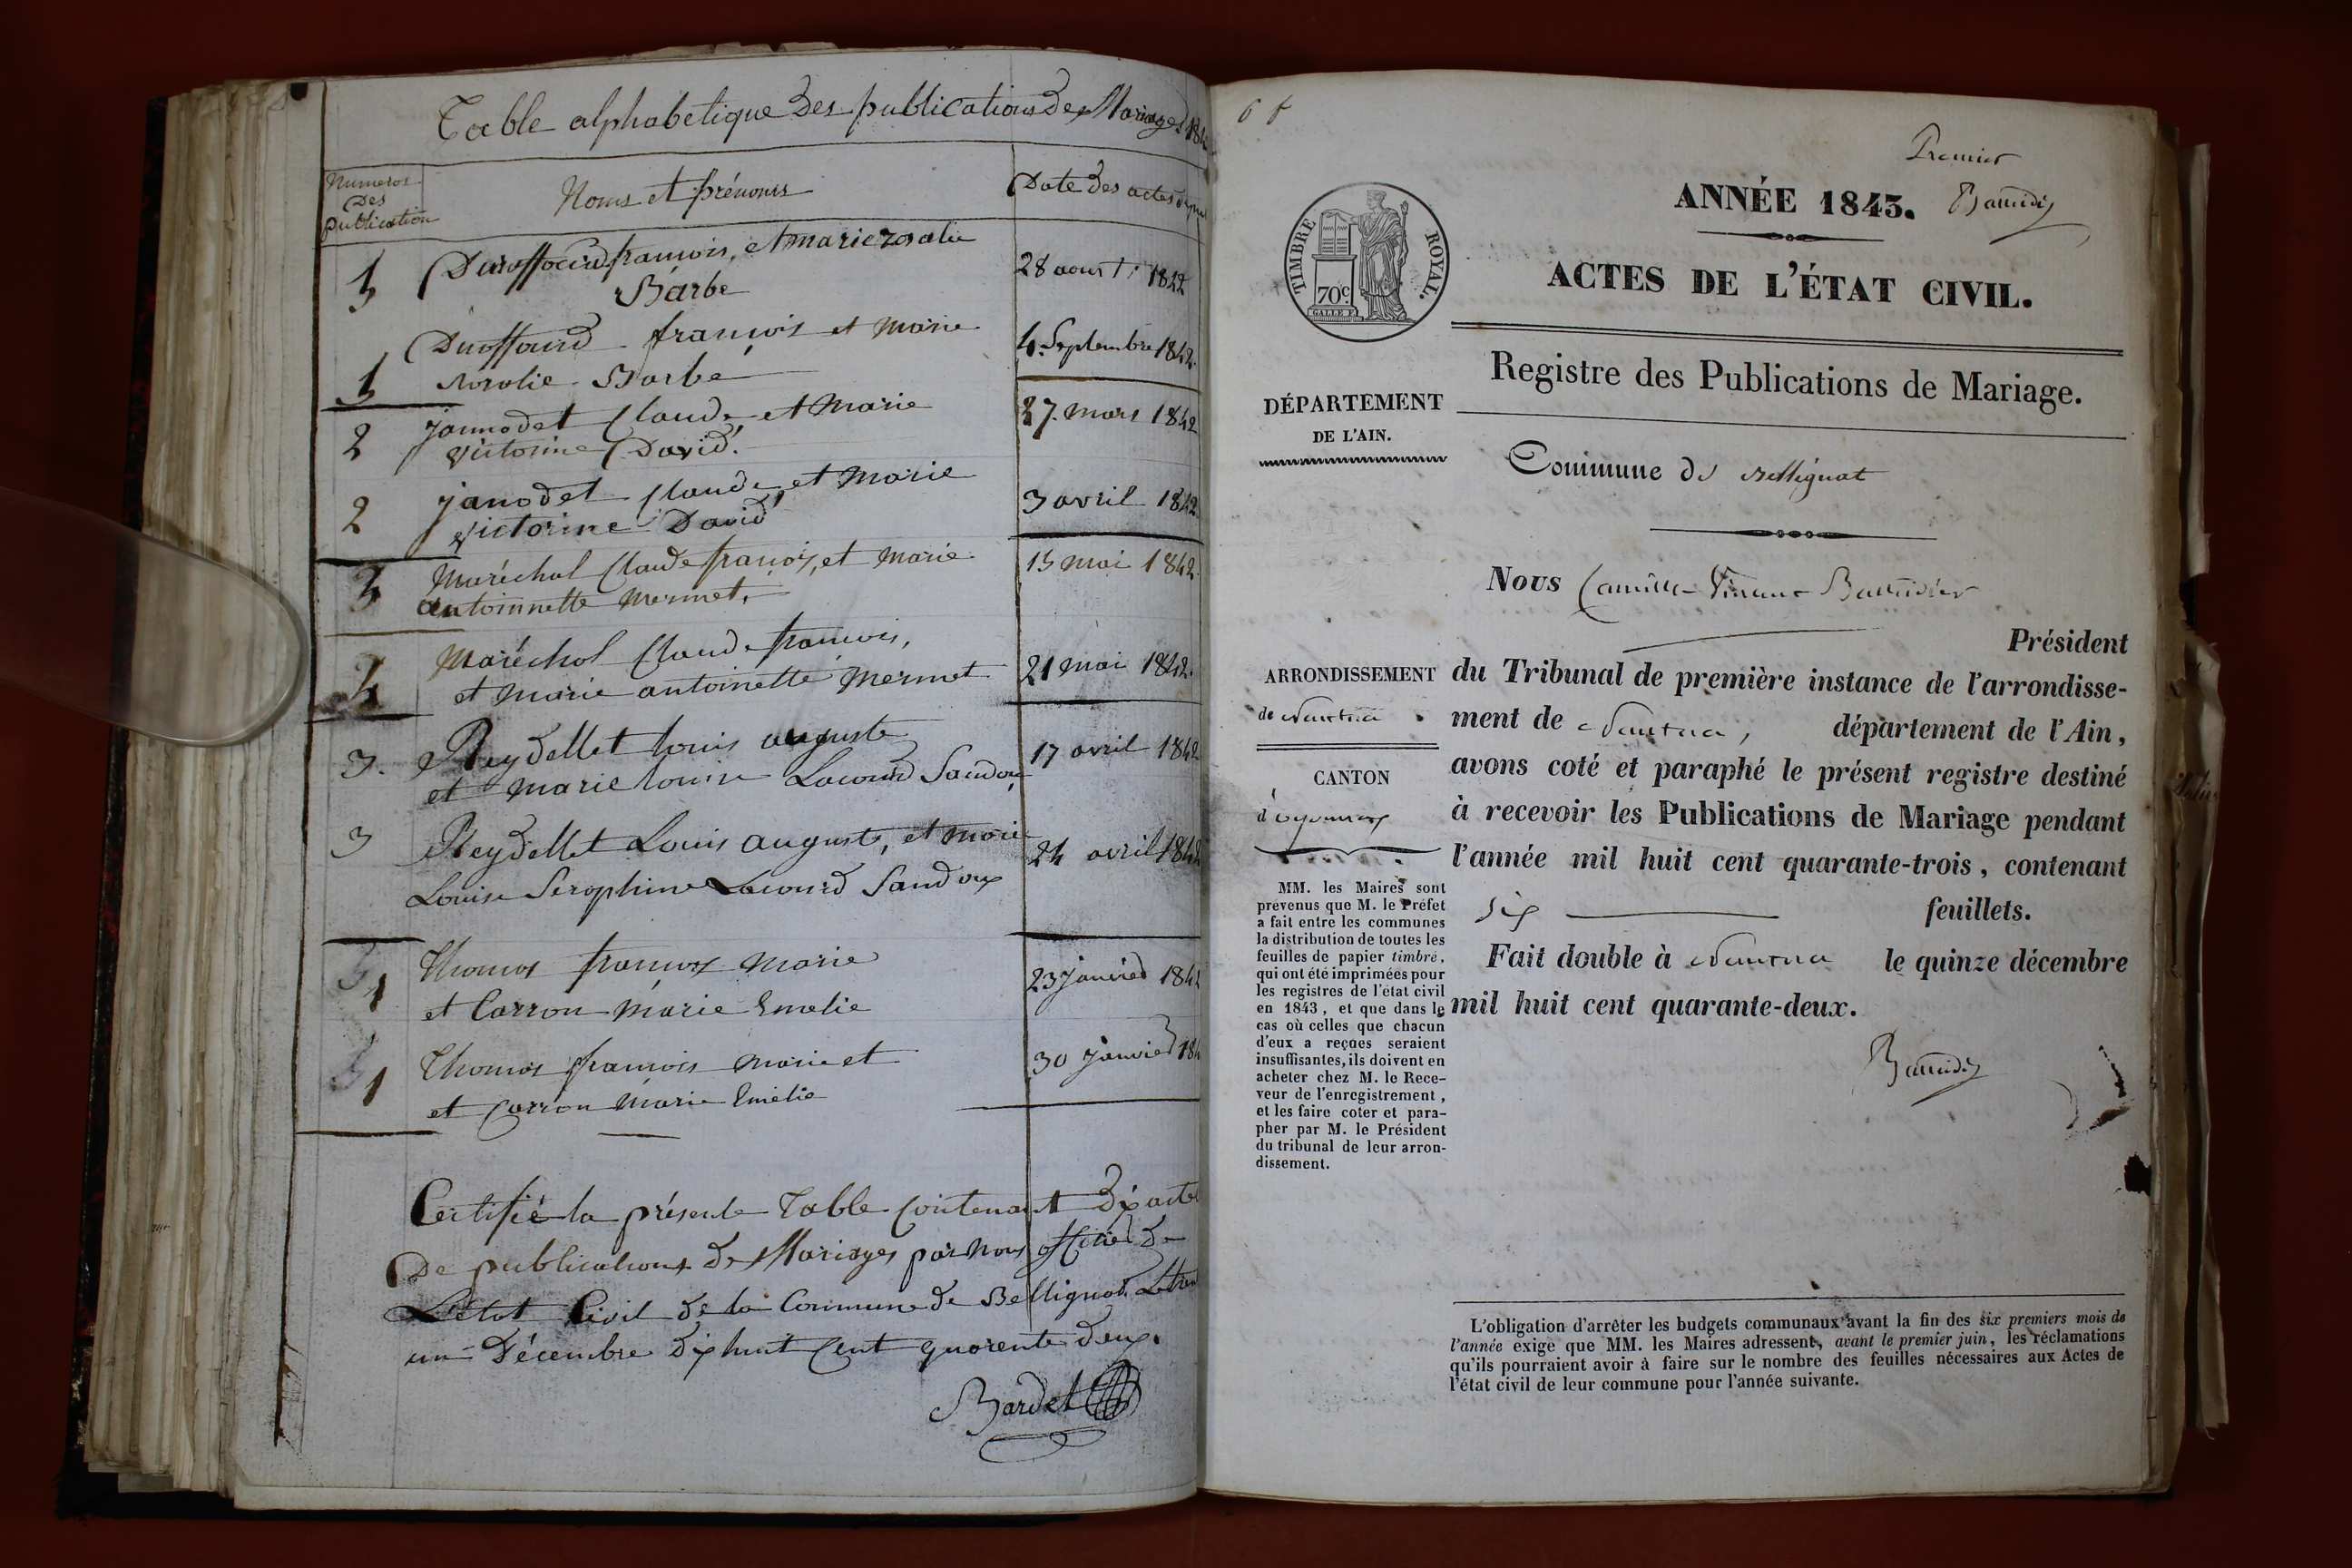 Table alphabetique des publications de Mariages
Numeros des publication
Noms et prénoms
Date des actes
françois, et marie rosalie
Barbe
28 aoust 1842
Duraffourd françois et marie
rosalie Barbe
4 Septembre 1842.
2
janodet Claude et Marie
victorine David.
27 mars 1842
2
janodet Claude et Marie
victorine David
3 avril 1842
Maréchal Claude françois, et Marie
antoinnette Mermet.
15 mai 1842.
Maréchal Claude françois,
et Marie antoinette Mermet
21 mai 1842.
3.
Reydellet louis auguste
et Marie louise Lacourd Sandoux
17 avril 1842
3
Reydellet Louis auguste, et Marie
Louise Seraphine Lacourd Sandoux
24 avril 1842
1
Thomas françois Marie
et Carron Marie Emelie
23 janvier 1842
1
Thomas françois Marie et
et Carron Marie Emélie
30 janvier
Certifié la présente Table contenant dix actes
De publications de Mariages par Nous officier de
L'état Civil de la Commune de Bellignat Le trente
un Décembre dix huit Cent quarente deux.
Bardet
Premier
ANNÉE 1843.
TIMBRE ROYAL.
70c.
GALLE F.
ACTES DE L'ÉTAT CIVIL.
Registre des Publications de Mariage.
DÉPARTEMENT
DE L'AIN.
Commune de Bellignat
Nous Camille Vincent
Président
ARRONDISSEMENT
de Nantua
CANTON
d'oyonnax
du Tribunal de première instance de l'arrondisse-
ment de Nantua, département de l'Ain,
avons coté et paraphé le présent registre destiné
à recevoir les Publications de Mariage pendant
l'année mil huit cent quarante-trois, contenant
six feuillets.
Fait double à Nantua le quinze décembre
mil huit cent quarante-deux.
MM. les Maires sont
prévenus que M. le Préfet
a fait entre les communes
la distribution de toutes les
feuilles de papier timbré,
qui ont été imprimées pour
les registres de l'état civil
en 1843, et que dans le
cas où celles que chacun
d'eux a reçues seraient
insuffisantes, ils doivent en
acheter chez M. le Rece-
veur de l'enregistrement,
et les faire coter et para-
pher par M. le Président
du tribunal de leur arron-
dissement.
L'obligation d'arrêter les budgets communaux avant la fin des six premiers mois de
l'année exige que MM. les Maires adressent, avant le premier juin, les réclamations
qu'ils pourraient avoir à faire sur le nombre des feuilles nécessaires aux Actes de
l'état civil de leur commune pour l'année suivante.